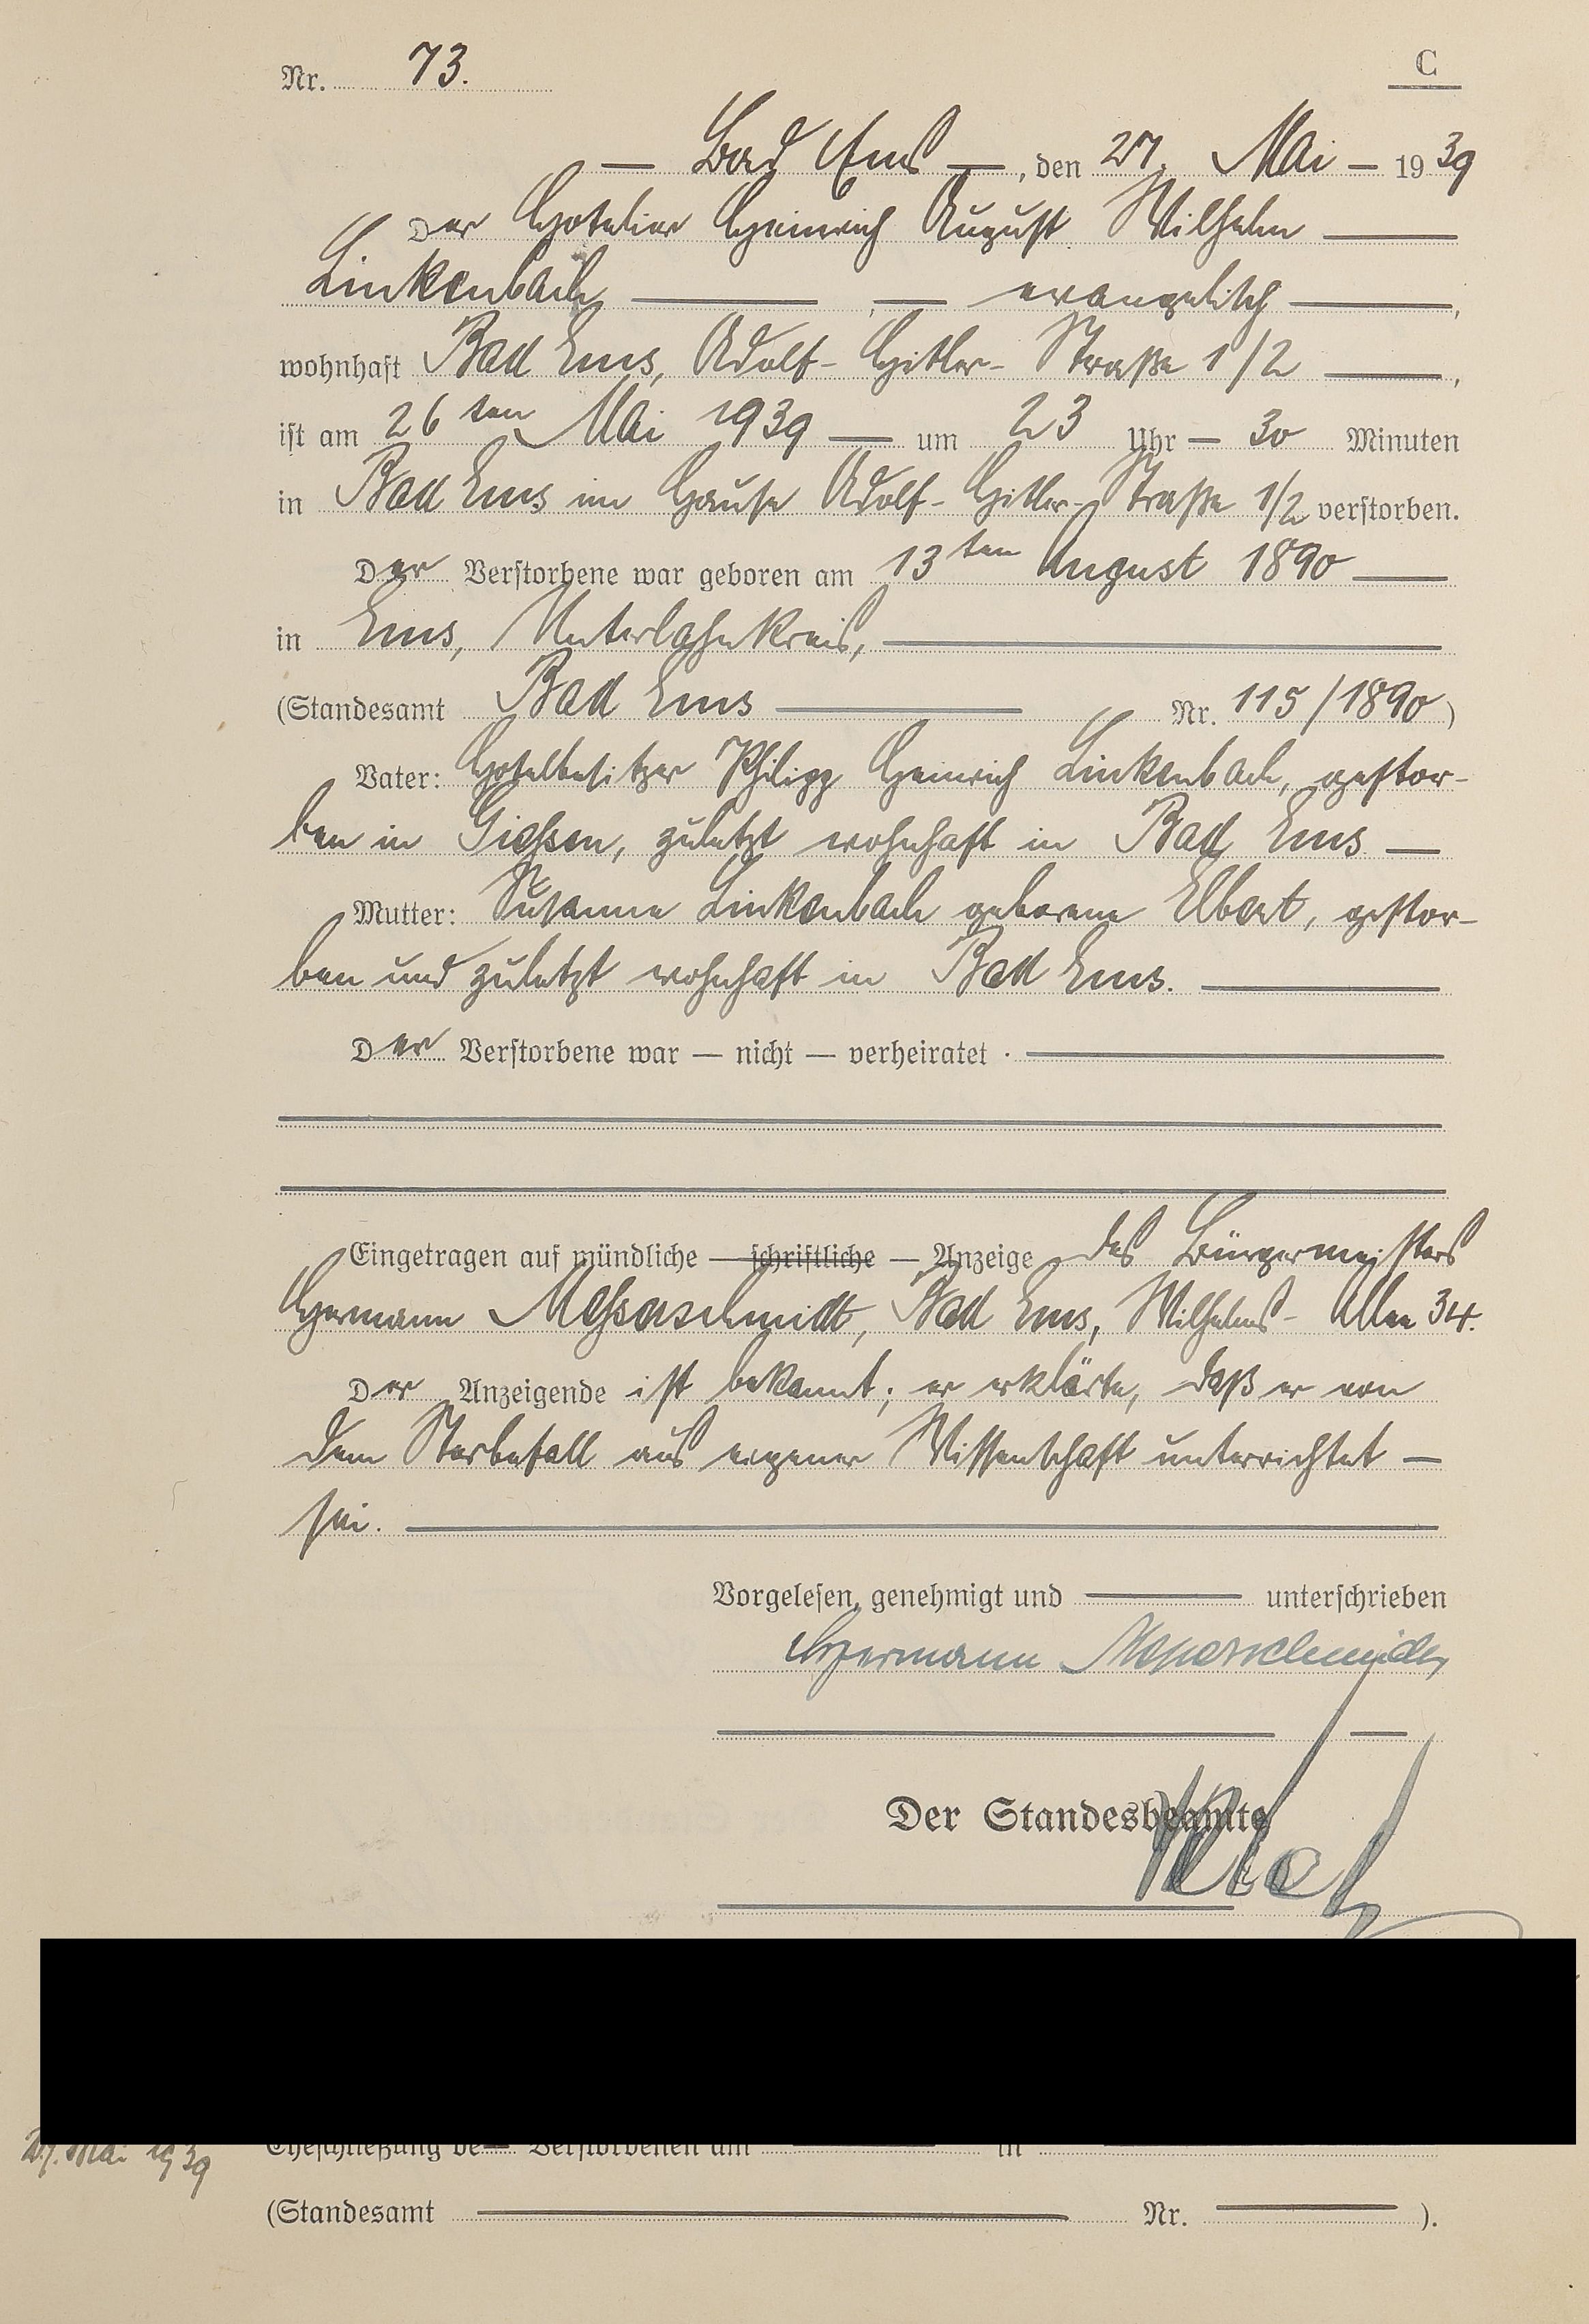 Nr. 73.
C
— Bad Ems —, den 27. Mai — 1939
Der Hotelier Heinrich August Wilhelm —
Linkenbach —, — evangelisch —,
wohnhaft Bad Ems, Adolf-Hitler-Straße 1/2 —,
ist am 26ten Mai 1939 — um 23 Uhr — 30 Minuten
in Bad Ems im Hause Adolf-Hitler-Straße 1/2 verstorben.
Der Verstorbene war geboren am 13ten August 1890 —
in Ems, Unterlahnkreis, —
(Standesamt Bad Ems — Nr. 115/1890)
Vater: Hotelbesitzer Philipp Heinrich Linkenbach, gestor-
ben in Giessen, zuletzt wohnhaft in Bad Ems —
Mutter: Susanne Linkenbach geborene Elbert, gestor-
ben und zuletzt wohnhaft in Bad Ems. —
Der Verstorbene war — nicht — verheiratet. —
Eingetragen auf mündliche — schriftliche — Anzeige des Bürgermeisters
Hermann Messerschmidt, Bad Ems, Wilhelms-Allee 34.
Der Anzeigende ist bekannt; er erklärte, daß er von
dem Sterbefall aus eigener Wissenschaft unterrichtet —
sei. —
Vorgelesen, genehmigt und — unterschrieben
Hermann Messerschmidt
Der Standesbeamte
27. Mai 1939
Eheschließung de— Verstorbenen am — in —
(Standesamt — Nr. — ).